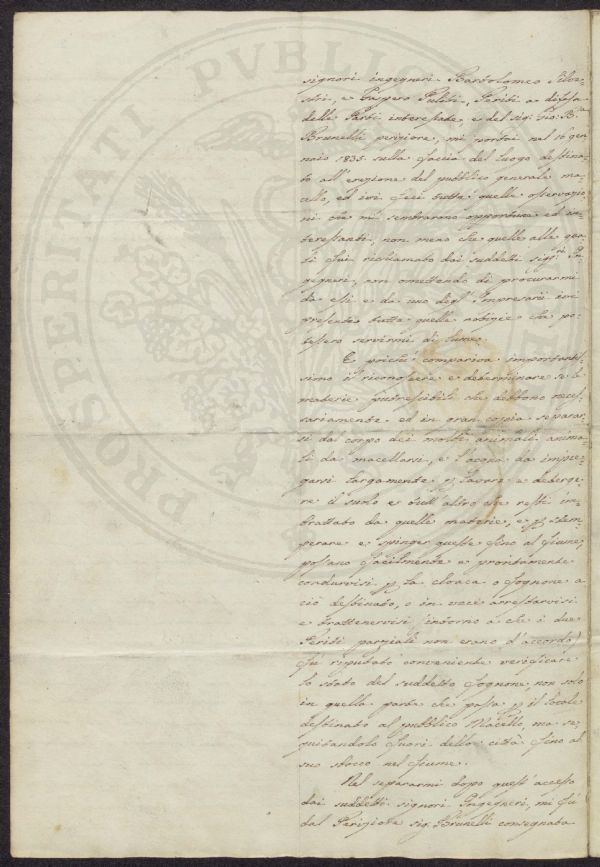 signori ingegneri Bartolomeo Silve-
stri, e Gaspero Puliti, Periti a difesa
delle Parti interessate, e del sig. Gio: Ba
Brunelli perigiore, mi portai nel 16 gen
naio 1835 sulla faccia del luogo destina-
to all'erezione del pubblico generale ma-
cello, ed ivi feci tutte quelle osservazio-
ni che mi sembrarono opportune ed in-
teressanti, non meno che quelle alle qua-
li fui richiamato dai suddetti sigri In-
gegneri, non omettendo di procurarmi
da essi e da uno degl'Impresarii ivi
presente tutte quelle notizie che po-
tessero servirmi di lume.
E poiché compariva importantis-
simo il riconoscere e determinare se le
materie putrescibili che debbono neces-
sariamente ed in gran copia separar-
si da corpo dei molti animali
da macellarsi, e l'acqua da impie-
garsi largamente p lavare e deterge-
re il suolo e tutt'altro che resti im-
brattato da quelle materie, e p stem-
perare e spinger queste fino al fiume,
possano facilmente e prontamente
condurvisi p la cloaca o fognone a
ciò destinato, o in vece arrestarvisi
e trattenervisi (intorno a che i due
Periti parziali non erano d'accordo)
fu riputato conveniente verificare
lo stato del suddetto fognone, non solo
in quella parte che passa p il locale
destinato al pubblico Macello, ma se-
guitandolo fuori della città fino al
suo sbocco nel fiume.
Nel separarmi dopo quest'accesso
dai suddetti signori Ingegneri, mi fù
dal Periziore sig. Brunelli consegnata
PROSPERITATI PVBLICAE